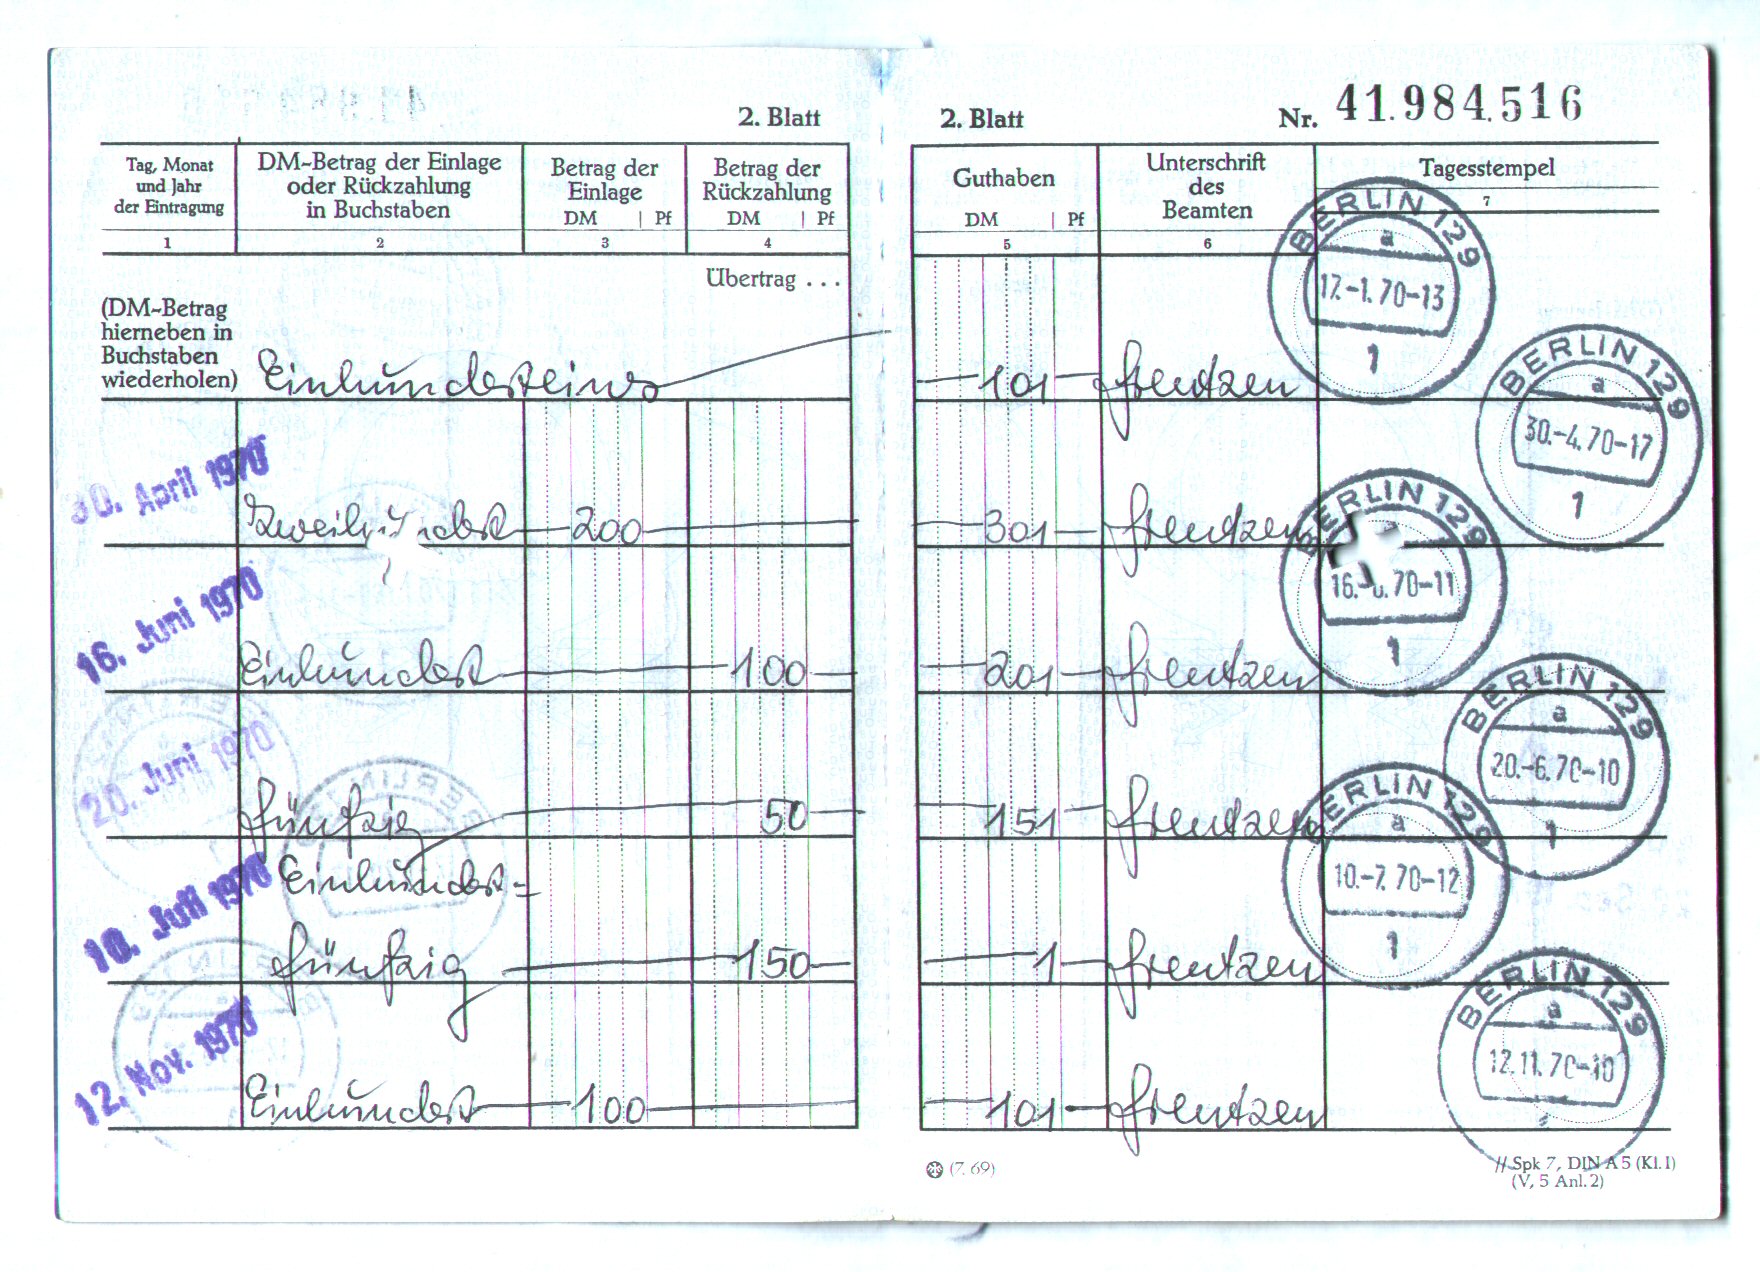 2. Blatt
2. Blatt Nr. 41.984.516
Tag, Monat
und Jahr
der Eintragung
1
DM-Betrag der Einlage
oder Rückzahlung
in Buchstaben
2
Betrag der
Einlage
DM | Pf
3
Betrag der
Rückzahlung
DM | Pf
4
Guthaben
DM | Pf
5
Unterschrift
des
Beamten
6
Tagesstempel
7
Übertrag . . .
(DM-Betrag
hierneben in
Buchstaben
wiederholen)
Einhunderteins 101 Frentzen
BERLIN 129
a
17.-1.70-13
1
30. April 1970
Zweihundert 200 301 Frentzen
BERLIN 129
a
30.-4.70-17
1
16. Juni 1970
Einhundert 100 201 Frentzen
BERLIN 129
16.-6.70-11
1
20. Juni 1970
fünfzig 50 151 Frentzen
BERLIN 129
a
20.-6.70-10
1
10. Juli 1970
Einhundert=
fünfzig 150 1 Frentzen
BERLIN 129
a
10.-7.70-12
1
12. Nov. 1970
Einhundert 100 101 Frentzen
BERLIN 129
a
12.11.70-10
(7. 69)
// Spk 7, DIN A 5 (Kl. I)
(V, 5 Anl. 2)